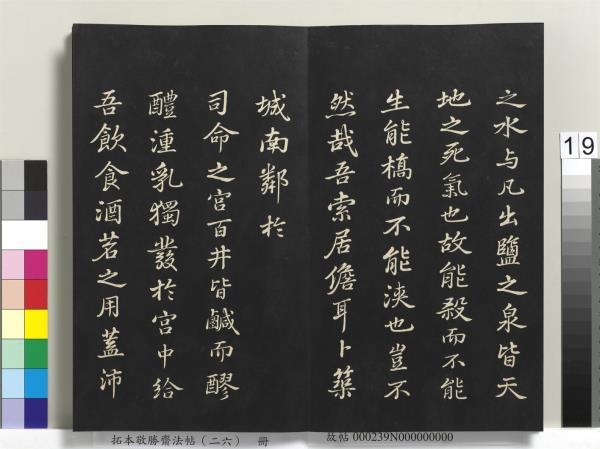 之水与凡出鹽之泉皆天
地之死氣也故能殺而不能
生能槁而不能浹也豈不
然哉吾索居儋耳卜築
城南鄰於
司命之宮百井皆鹹而醪
醴湩乳獨發於宮中給
吾飲食酒茗之用蓋沛
19
拓本敬勝齋法帖(二六) 冊
故帖 000239N000000000